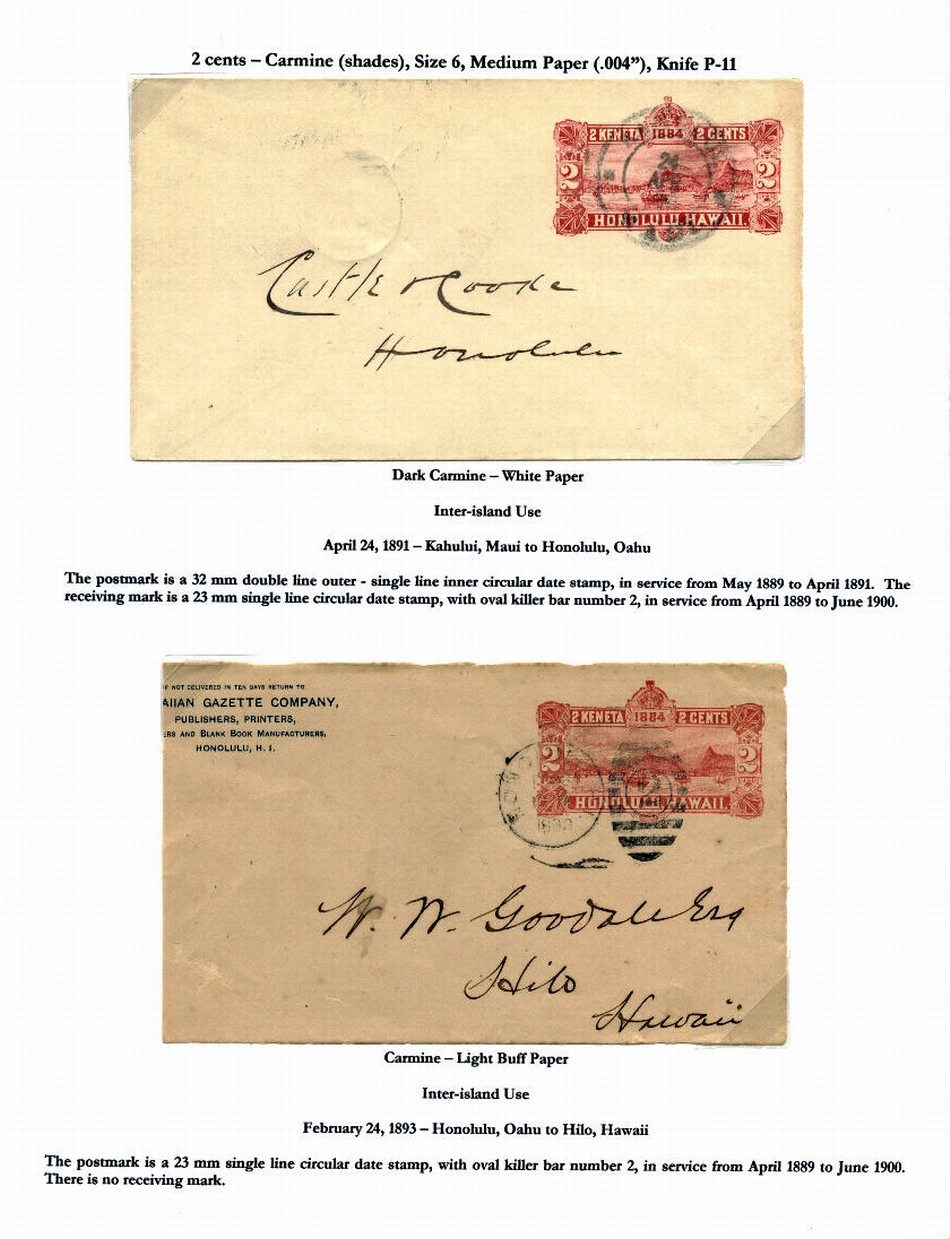 2 cents – Carmine (shades), Size 6, Medium Paper (.004”), Knife P-11
2 KENETA 1884 2 CENTS
2 2
24
HONOLULU, HAWAII.
Castle & Cooke
Honolulu
Dark Carmine – White Paper
Inter-island Use
April 24, 1891 – Kahului, Maui to Honolulu, Oahu
The postmark is a 32 mm double line outer - single line inner circular date stamp, in service from May 1889 to April 1891. The
receiving mark is a 23 mm single line circular date stamp, with oval killer bar number 2, in service from April 1889 to June 1900.
F NOT DELIVERED IN TEN DAYS RETURN TO
AIIAN GAZETTE COMPANY,
PUBLISHERS, PRINTERS,
ERS AND BLANK BOOK MANUFACTURERS,
HONOLULU, H. I.
2 KENETA 1884 2 CENTS
2 2
HONOLULU, HAWAII.
1893
2
W. W. Goodale Esq
Hilo
Hawaii
Carmine – Light Buff Paper
Inter-island Use
February 24, 1893 – Honolulu, Oahu to Hilo, Hawaii
The postmark is a 23 mm single line circular date stamp, with oval killer bar number 2, in service from April 1889 to June 1900.
There is no receiving mark.